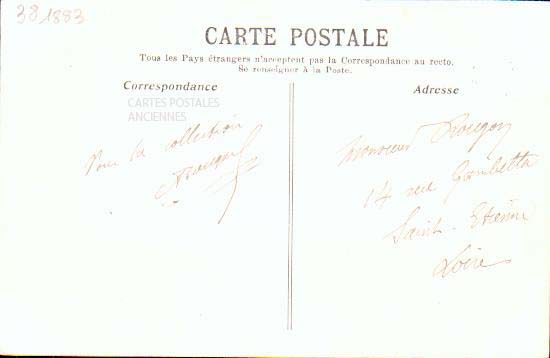 38 1883
CARTE POSTALE
Tous les Pays étrangers n'acceptent pas la Correspondance au recto.
Se renseigner à la Poste.
Correspondance
Adresse
CARTES POSTALES
ANCIENNES
Pour la collection
Monsieur
14 rue Gambetta
Saint-Etienne
Loire